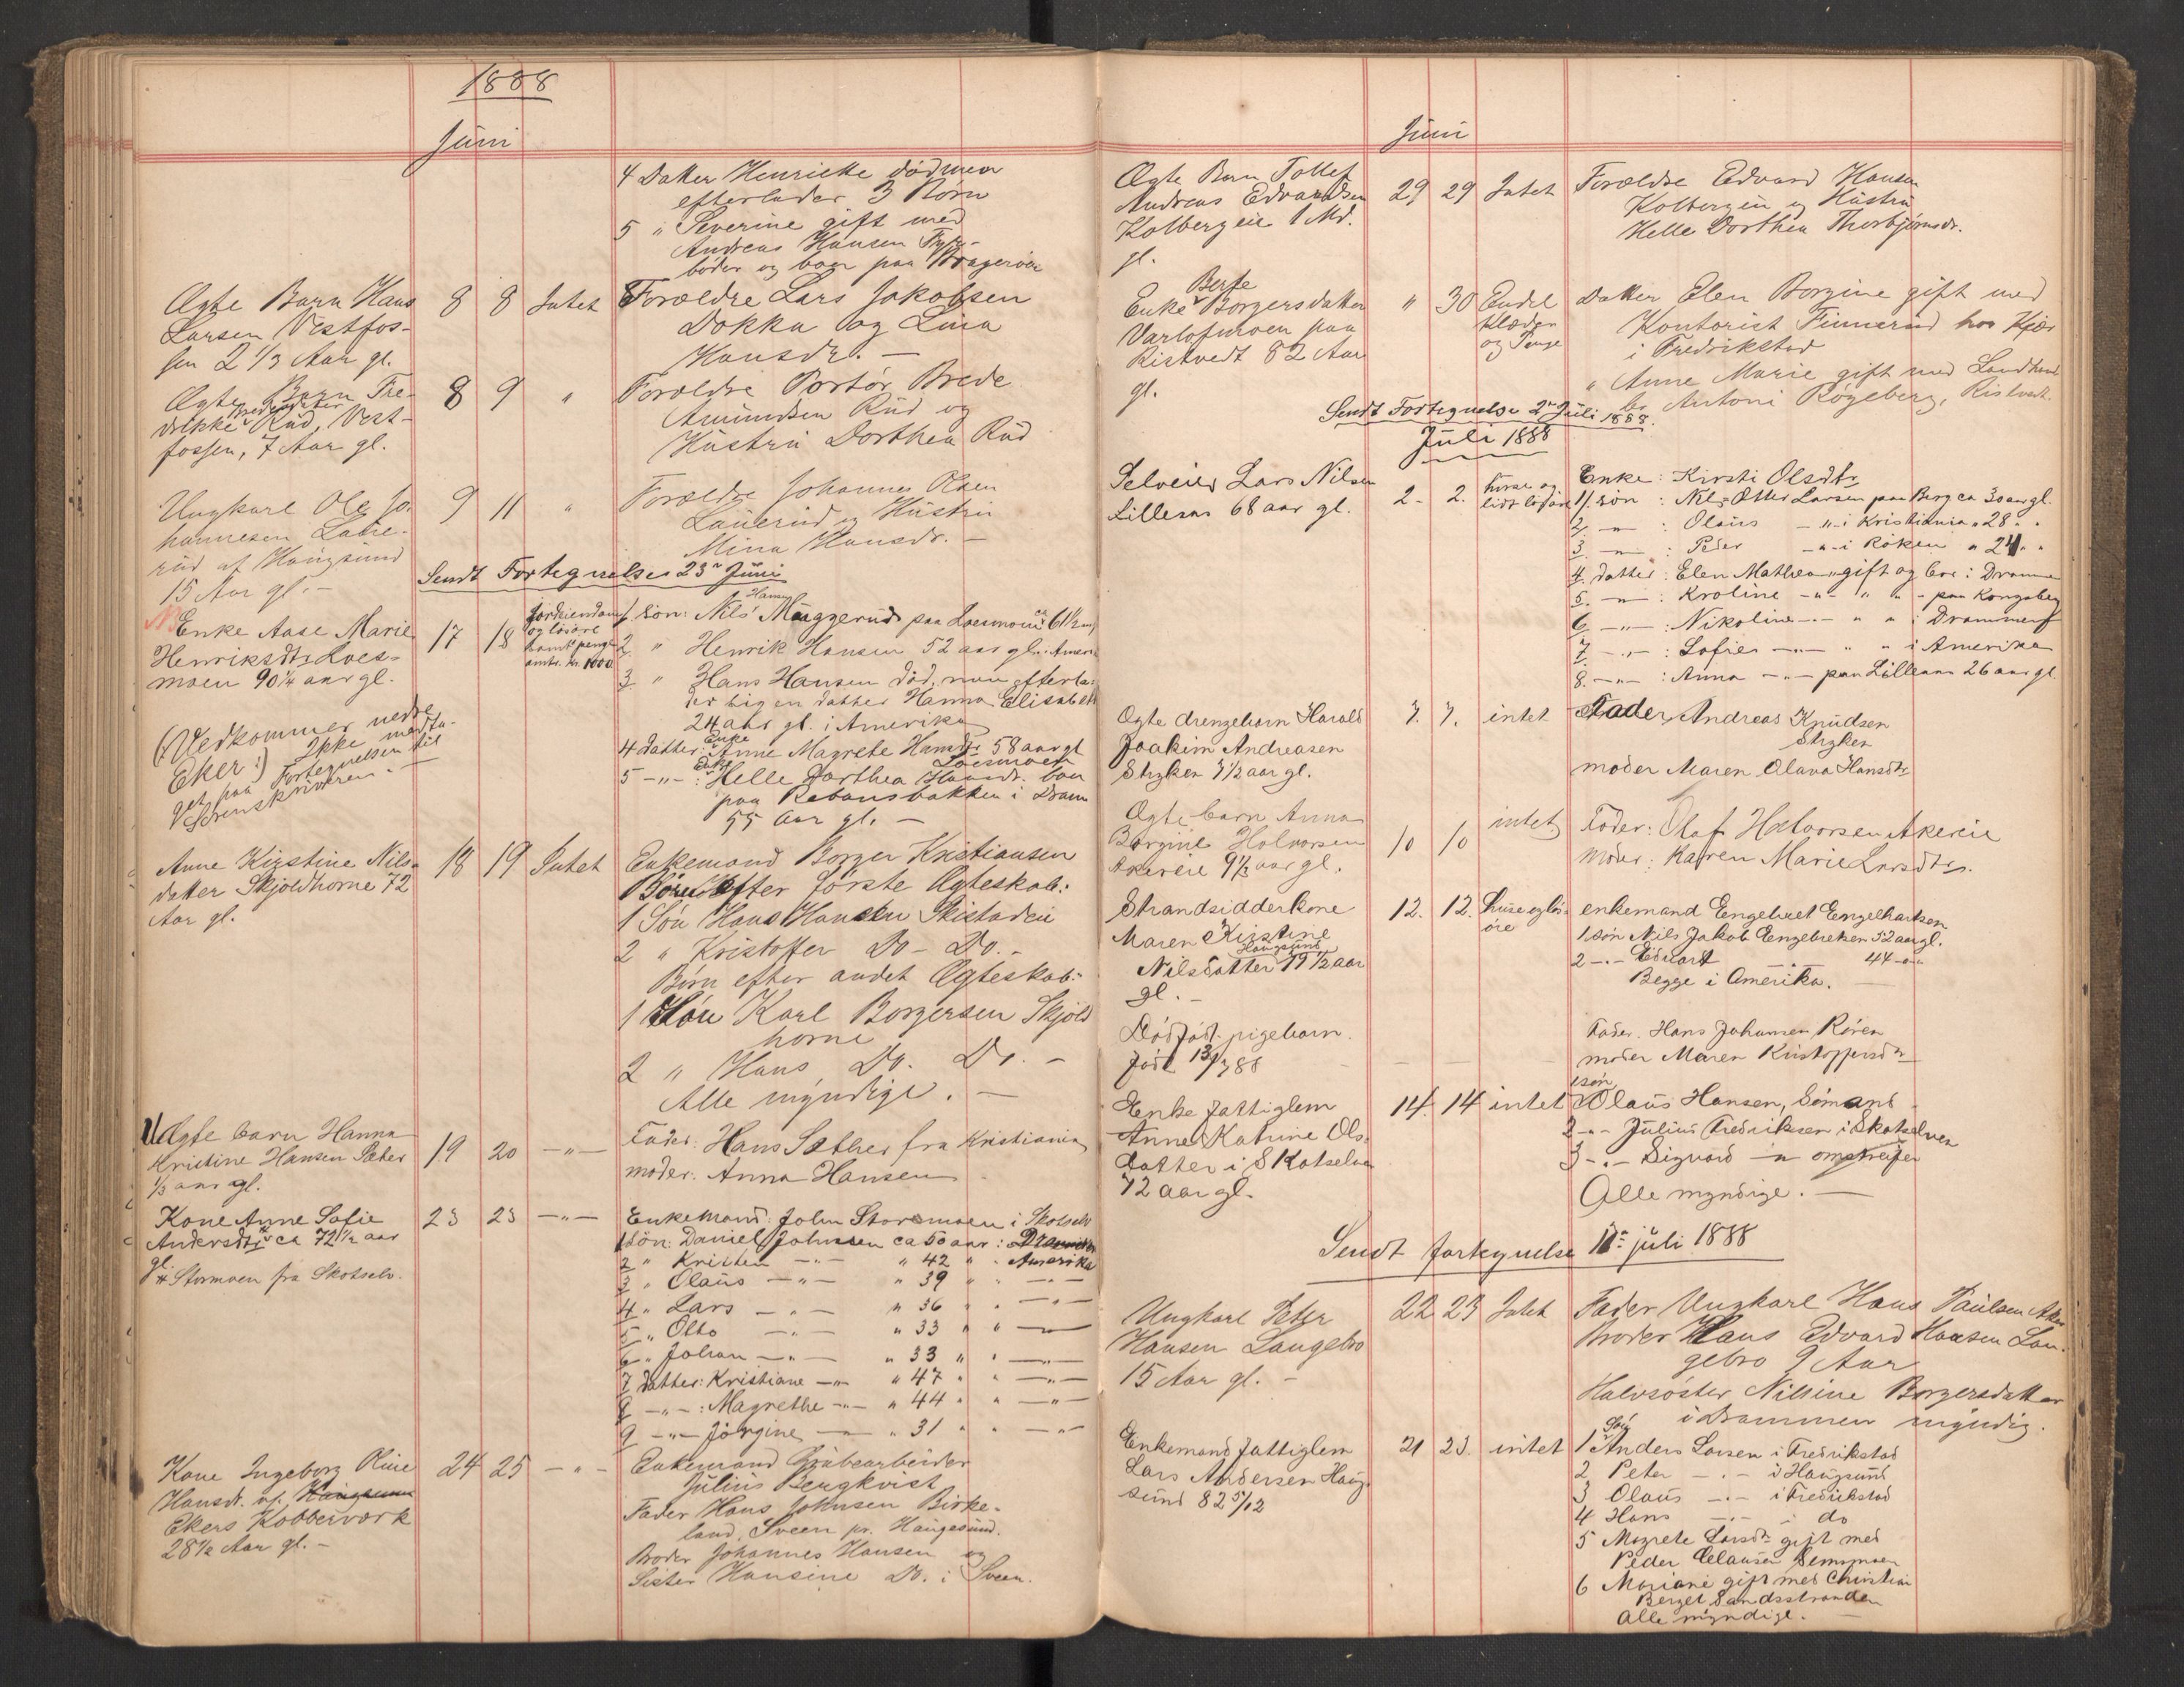 1888
Juni
4 Datter Henriette død men
efterlader 3 Børn
5 " Severine gift med
Andreas Hansen
boder og boer paa Bragerøen
Ægte Barn Hans
Larsen Vestfos-
sen 2 1/3 Aar gl.
8 8 Intet
Forældre Lars Jakobsen
Dokka og Lina
Hansdr. —
Ægte Barn Fre-
drikke Bredesdatter Rud, Vest-
fossen, 7 Aar gl.
8 9 "
Forældre Portør Brede
Amundsen Rud og
Hustru Dorthea Rud
Ungkarl Ole Jo-
hannesen Laue-
rud af Haugsund
15 Aar gl. —
9 11 "
Forældre Johannes Olsen
Lauerud og Hustru
Mina Hansdr. —
Sendt Fortegnelse 23de Juni
Enke Aase Marie
Henriksdtr Loes-
moen 90 1/4 aar gl.
17 18
Jordeiendom
og løsøre
samt penge
omtr. kr. 1000
1 søn: Nils Hansen Muggerud paa Loesmoen ca 61 1/2 aar
2 " Henrik Hansen 52 aar gl. i Ameri
3 " Hans Hansen død, men efterla-
der sig en datter Hanna Elisabeth
24 aar gl. i Amerika
4 datter: Enke Anne Magrete Hansdtr 58 aar gl
Loesmoen
5 -"- : Enke Helle Dorthea Hansdr. boer
paa Rebansbakken i Dram
55 Aar gl. —
(: Vedkommer nedre
Eker :) Ikke medta-
get paa Fortegnelsen til
Sorenskriveren. —
Anne Kirstine Nils-
datter Skjoldhorne 72
Aar gl.
18 19 Intet
Enkemand Borger Kristiansen
Børn efter første Ægteskab:
1 Søn Hans Hansen Skistadeie
2 " Kristoffer Do - Do. -
Børn efter andet Ægteskab:
1 Søn Karl Borgersen Skjold
horne
2 " Hans Do. Do. -
Alle myndige. —
Uægte barn Hanna
Kristine Hansen Sæther
1/3 aar gl.
19 20 -"-
Fader: Hans Sæther fra Kristiania
moder: Anna Hansen
Kone Anne Sofie
Andersdtr # ca 72 1/2 aar
gl.
# Stormoen fra Skotselv.
23 23 -"-
Enkemand: John Stormoen i Skotselv
1 Søn: Daniel Johnsen ca 50 aar : Amerika
2 " Kristen -"- " 42 " "
3 " Olaus -"- " 39 " " -"-
4 " Lars -"- " 36 " " -"-
5 " Otto -"- " 33 " " -"-
6 " Johan -"- " 33 " " -"-
7 datter: Kristiane -"- " 47 " " -"-
8 -"- : Magrethe -"- " 44 " " -"-
9 -"- Jørgine -"- " 31 " " -"-
Kone Ingeborg Oline
Hansdr. af Haugsund
Ekers Kobberværk
28 1/2 Aar gl. -
24 25 -"-
Enkemand Grubearbeider
Julius Bergkvist
Fader Hans Johnsen Birke-
land, Sveen pr. Haugesund.
Broder Johannes Hansen og
Søster Hansine Do. i Sveen.
Juni
Ægte Barn Tollef
Andreas Edvardsen
Kolbergeie 1 Md.
gl.
29 29 Intet
Forældre Edvard Hansen
Kolbergeie og Hustru
Helle Dorthea Thorbjørnsdr.
Enke Berte Borgersdatter
Varlofmoen paa
Ristvedt 82 Aar
gl.
" 30
Endel
Klæder
og Penge
Datter Elen Borgine gift med
Kontorist Finnerud hos Kjær
i Fredrikstad
" Anne Marie gift med Landhand
ler Antoni Røgeberg, Ristvedt.
Sendt Fortegnelse 2de Juli 1888.
Juli 1888
Selveier Lars Nilsen
Lilleaas 68 aar gl.
2. 2.
huse og
lidt løsøre
Enke: Kirsti Olsdtr
1. søn : Nils Otter Larsen paa Berg ca 30 aar gl.
2 -"- : Olaus -"- i Kristiania " 28 " "
3. -"- : Peder -"- i Røken " 24 " "
4. datter: Elen Mathea gift og bor i Dramme
5. -"- : Kroline -"- " " - paa Kongsberg
6. -"- : Nikoline -"- " " i Drammen
7. -"- : Sofie -"- " " i Amerika
8. -"- : Anna -"- paa Lilleaas 26 aar gl
Ægte drengebarn Harald
Joakim Andreasen
Stryken 7 1/2 aar gl.
7. 7. intet
Fader Andreas Knudsen
Stryken
moder Maren Olava Hansdtr
Ægte barn Anna
Borgine Halvorsen
Akereie 9 1/3 aar gl.
10 10 intet
Fader: Olaf Halvorsen Akereie
Moder: Karen Marie Larsdtr.
Strandsidderkone
Maren Kirstine
Haugsund
Nilsdatter 79 1/2 aar
gl. -
12. 12.
huse og løs-
øre
enkemand Engebret Engebretsen
1 søn Nils Jakob Engebretsen 52 aar gl.
2 -"- Edvart -"- 44 -"-
Begge i Amerika. —
Dødfødt pigebarn.
født 13/7 88
Fader. Hans Johansen Røren
moder Maren Kristoffersdtr
Enke fattiglem
Anne Katrine Ols-
datter i Skotselven
72 aar gl.
14. 14 intet
1 søn Olaus Hansen, Sømand
2 -"- Julius Fredriksen i Skotselven
3 -"- Sigvard -"- omstreifer
Alle myndige. —
Sendt fortegnelse juli 1888
Ungkarl Peter
Hansen Langebro
15 Aar gl. -
22 23 Intet
Fader Ungkarl Hans Paulsen Aker
Broder Hans Edvard Hansen Lan-
gebro 9 Aar
Halvsøster Nilsine Borgersdatter
i Drammen myndig.
Enkemand fattiglem
Lars Andersen Haug-
sund 82 5/12
21 23. intet
1 Søn Anders Larsen i Fredrikstad
2 Peter -"- i Haugsund
3 Olaus -"- i Fredrikstad
4 Hans -"- i do
5 Magrete Larsdtr gift med
Peder Clausen Semsmoen
6 Mariane gift med Christian
Berget Sandsstranden
Alle myndige. —